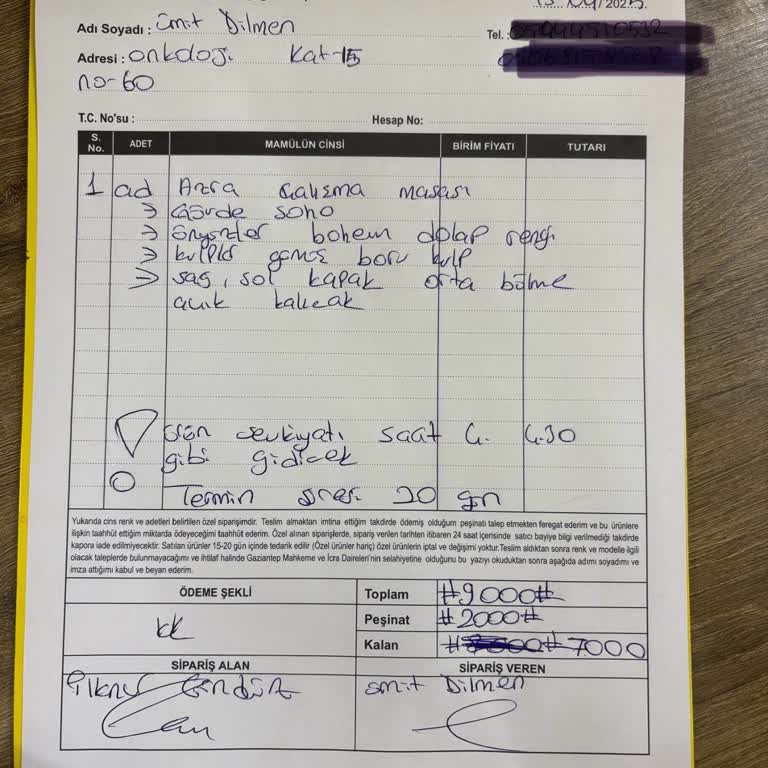 Adı Soyadı : Ümit Dilmen
Tel. :
Adresi : onkdoğ. Kat-15
no-60
T.C. No'su : Hesap No:
S. No. ADET MAMÜLÜN CİNSİ BİRİM FİYATI TUTARI
1 ad Azra Çalışma masası
→ Gövde soho
→ bohem dolap rengi
→ kulplar gümüş boru kulp
→ sağ, sol kapak orta bölme
açık kalıcak
ürün sevkiyatı saat 4. 4.30
gibi gidicek
Termin süresi 20 gün
Yukarıda cins renk ve adetleri belirtilen özel siparişimdir. Teslim almaktan imtina ettiğim takdirde ödemiş olduğum peşinatı talep etmekten feregat ederim ve bu ürünlere
ilişkin taahhüt ettiğim miktarda ödeyeceğimi taahhüt ederim. Özel alınan siparişlerde, sipariş verilen tarihten itibaren 24 saat içerisinde satıcı bayiye bilgi verilmediği takdirde
kapora iade edilmiyecektir. Satılan ürünler 15-20 gün içinde tedarik edilir (Özel ürünler hariç) özel ürünlerin iptal ve değişimi yoktur.Teslim aldıktan sonra renk ve modelle ilgili
olacak taleplerde bulunmayacağımı ve ihtilaf halinde Gaziantep Mahkeme ve İcra Daireleri'nin selahiyetine olduğunu bu yazıyı okuduktan sonra aşağıda adımı soyadımı ve
imza attığımı kabul ve beyan ederim.
ÖDEME ŞEKLİ
kk
Toplam #9000#
Peşinat #2000#
Kalan 7000
SİPARİŞ ALAN SİPARİŞ VEREN
Ümit Dilmen